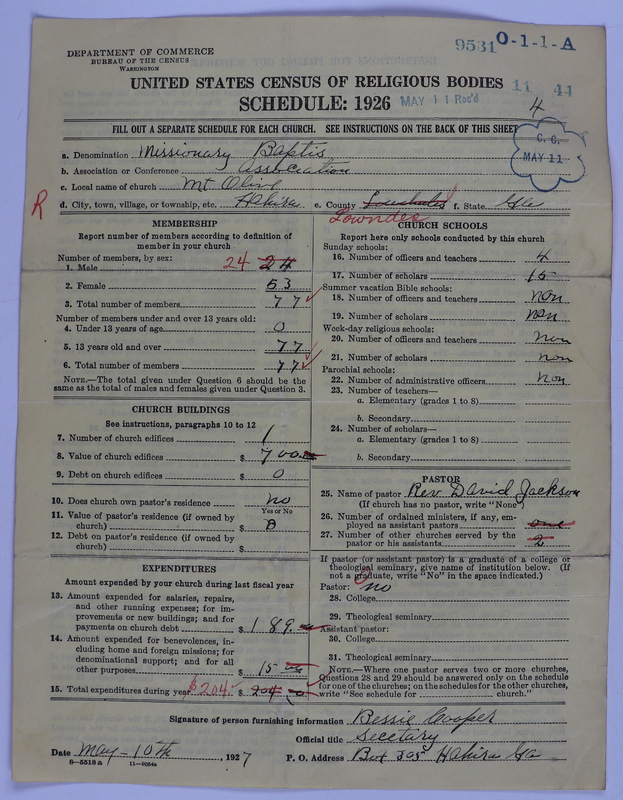 9531 O-1-1-A
DEPARTMENT OF COMMERCE
BUREAU OF THE CENSUS
WASHINGTON
UNITED STATES CENSUS OF RELIGIOUS BODIES
11 41
SCHEDULE: 1926 MAY 11 Rec'd
4
FILL OUT A SEPARATE SCHEDULE FOR EACH CHURCH. SEE INSTRUCTIONS ON THE BACK OF THIS SHEET
C. C.
MAY 11
a. Denomination Missionary Baptis
b. Association or Conference association
c. Local name of church Mt Olive
R
d. City, town, village, or township, etc. Hahira e. County Lowndes f. State Ga
MEMBERSHIP
Report number of members according to definition of
member in your church
Number of members, by sex:
1. Male 24 24
2. Female 53
3. Total number of members 77
Number of members under and over 13 years old:
4. Under 13 years of age 0
5. 13 years old and over 77
6. Total number of members 77
NOTE.—The total given under Question 6 should be the
same as the total of males and females given under Question 3.
CHURCH BUILDINGS
See instructions, paragraphs 10 to 12
7. Number of church edifices 1
8. Value of church edifices $ 700
9. Debt on church edifices $ 0
10. Does church own pastor's residence no
Yes or No
11. Value of pastor's residence (if owned by
church) $ 0
12. Debt on pastor's residence (if owned by
church) $
EXPENDITURES
Amount expended by your church during last fiscal year
13. Amount expended for salaries, repairs,
and other running expenses; for im-
provements or new buildings; and for
payments on church debt $ 189.
14. Amount expended for benevolences, in-
cluding home and foreign missions; for
denominational support; and for all
other purposes $ 15
15. Total expenditures during year $204. $ 204
CHURCH SCHOOLS
Report here only schools conducted by this church
Sunday schools:
16. Number of officers and teachers 4
17. Number of scholars 15
Summer vacation Bible schools:
18. Number of officers and teachers non
19. Number of scholars non
Week-day religious schools:
20. Number of officers and teachers non
21. Number of scholars non
Parochial schools:
22. Number of administrative officers non
23. Number of teachers—
a. Elementary (grades 1 to 8)
b. Secondary
24. Number of scholars—
a. Elementary (grades 1 to 8)
b. Secondary
PASTOR
25. Name of pastor Rev. David Jackson
(If church has no pastor, write "None")
26. Number of ordained ministers, if any, em-
ployed as assistant pastors one
27. Number of other churches served by the
pastor or his assistants 2
If pastor (or assistant pastor) is a graduate of a college or
theological seminary, give name of institution below. (If
not a graduate, write "No" in the space indicated.)
Pastor: no
28. College
29. Theological seminary
Assistant pastor:
30. College
31. Theological seminary
NOTE.—Where one pastor serves two or more churches,
Questions 28 and 29 should be answered only on the schedule
for one of the churches; on the schedules for the other churches,
write "See schedule for church."
Signature of person furnishing information Bessie Cooper
Official title Secetary
Date May-10th, 1927 P. O. Address Box 305 Hahira Ga
8-5518 a 11-9054a